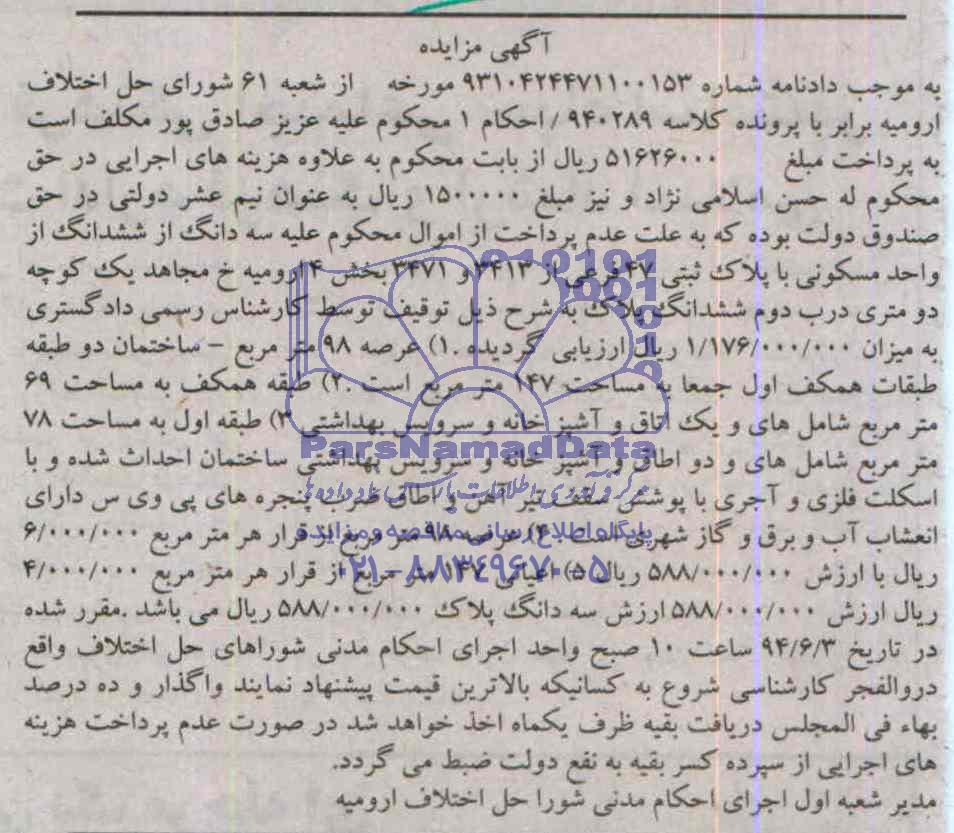 آگهی مزایده
به موجب دادنامه شماره ۹۳۱۰۴۲۴۴۷۱۱۰۰۱۵۳ مورخه از شعبه ۶۱ شورای حل اختلاف
ارومیه برابر با پرونده کلاسه ۹۴۰۲۸۹ / احکام ۱ محکوم علیه عزیز صادق پور مکلف است
به پرداخت مبلغ ۵۱۶۲۶۰۰۰ ریال از بابت محکوم به علاوه هزینه های اجرایی در حق
محکوم له حسن اسلامی نژاد و نیز مبلغ ۱۵۰۰۰۰۰ ریال به عنوان نیم عشر دولتی در حق
صندوق دولت بوده که به علت عدم پرداخت از اموال محکوم علیه سه دانگ از ششدانگ از
واحد مسکونی با پلاک ثبتی ۴۷ فرعی از ۳۴۱۳ و ۳۴۷۱ بخش ۴ ارومیه خ مجاهد یک کوچه
دو متری درب دوم ششدانگ پلاک به شرح ذیل توقیف توسط کارشناس رسمی دادگستری
به میزان ۱/۱۷۶/۰۰۰/۰۰۰ ریال ارزیابی گردیده .۱) عرصه ۹۸ متر مربع – ساختمان دو طبقه
طبقات همکف اول جمعا به مساحت ۱۴۷ متر مربع است .۲) طبقه همکف به مساحت ۶۹
متر مربع شامل های و یک اتاق و آشپزخانه و سرویس بهداشتی ۳) طبقه اول به مساحت ۷۸
متر مربع شامل های و دو اطاق و آشپز خانه و سرویس بهداشتی ساختمان احداث شده و با
اسکلت فلزی و آجری با پوشش سقف تیر آهن و اطاق ضرب پنجره های پی وی س دارای
انعشاب آب و برق و گاز شهری است ۴) عرصه ۹۸ متر مربع از قرار هر متر مربع ۶/۰۰۰/۰۰۰
ریال با ارزش ۵۸۸/۰۰۰/۰۰۰ ریال ۵) اعیانی ۱۴۷ متر مربع از قرار هر متر مربع ۴/۰۰۰/۰۰۰
ریال ارزش ۵۸۸/۰۰۰/۰۰۰ ارزش سه دانگ پلاک ۵۸۸/۰۰۰/۰۰۰ ریال می باشد .مقرر شده
در تاریخ ۹۴/۶/۳ ساعت ۱۰ صبح واحد اجرای احکام مدنی شوراهای حل اختلاف واقع
دروالفجر کارشناسی شروع به کسانیکه بالاترین قیمت پیشنهاد نمایند واگذار و ده درصد
بهاء فی المجلس دریافت بقیه ظرف یکماه اخذ خواهد شد در صورت عدم پرداخت هزینه
های اجرایی از سپرده کسر بقیه به نفع دولت ضبط می گردد.
مدیر شعبه اول اجرای احکام مدنی شورا حل اختلاف ارومیه
ParsNamadData
پایگاه اطلاع رسانی مناقصه و مزایده
۰۲۱-۸۸۳۴۹۶۷۰-۵